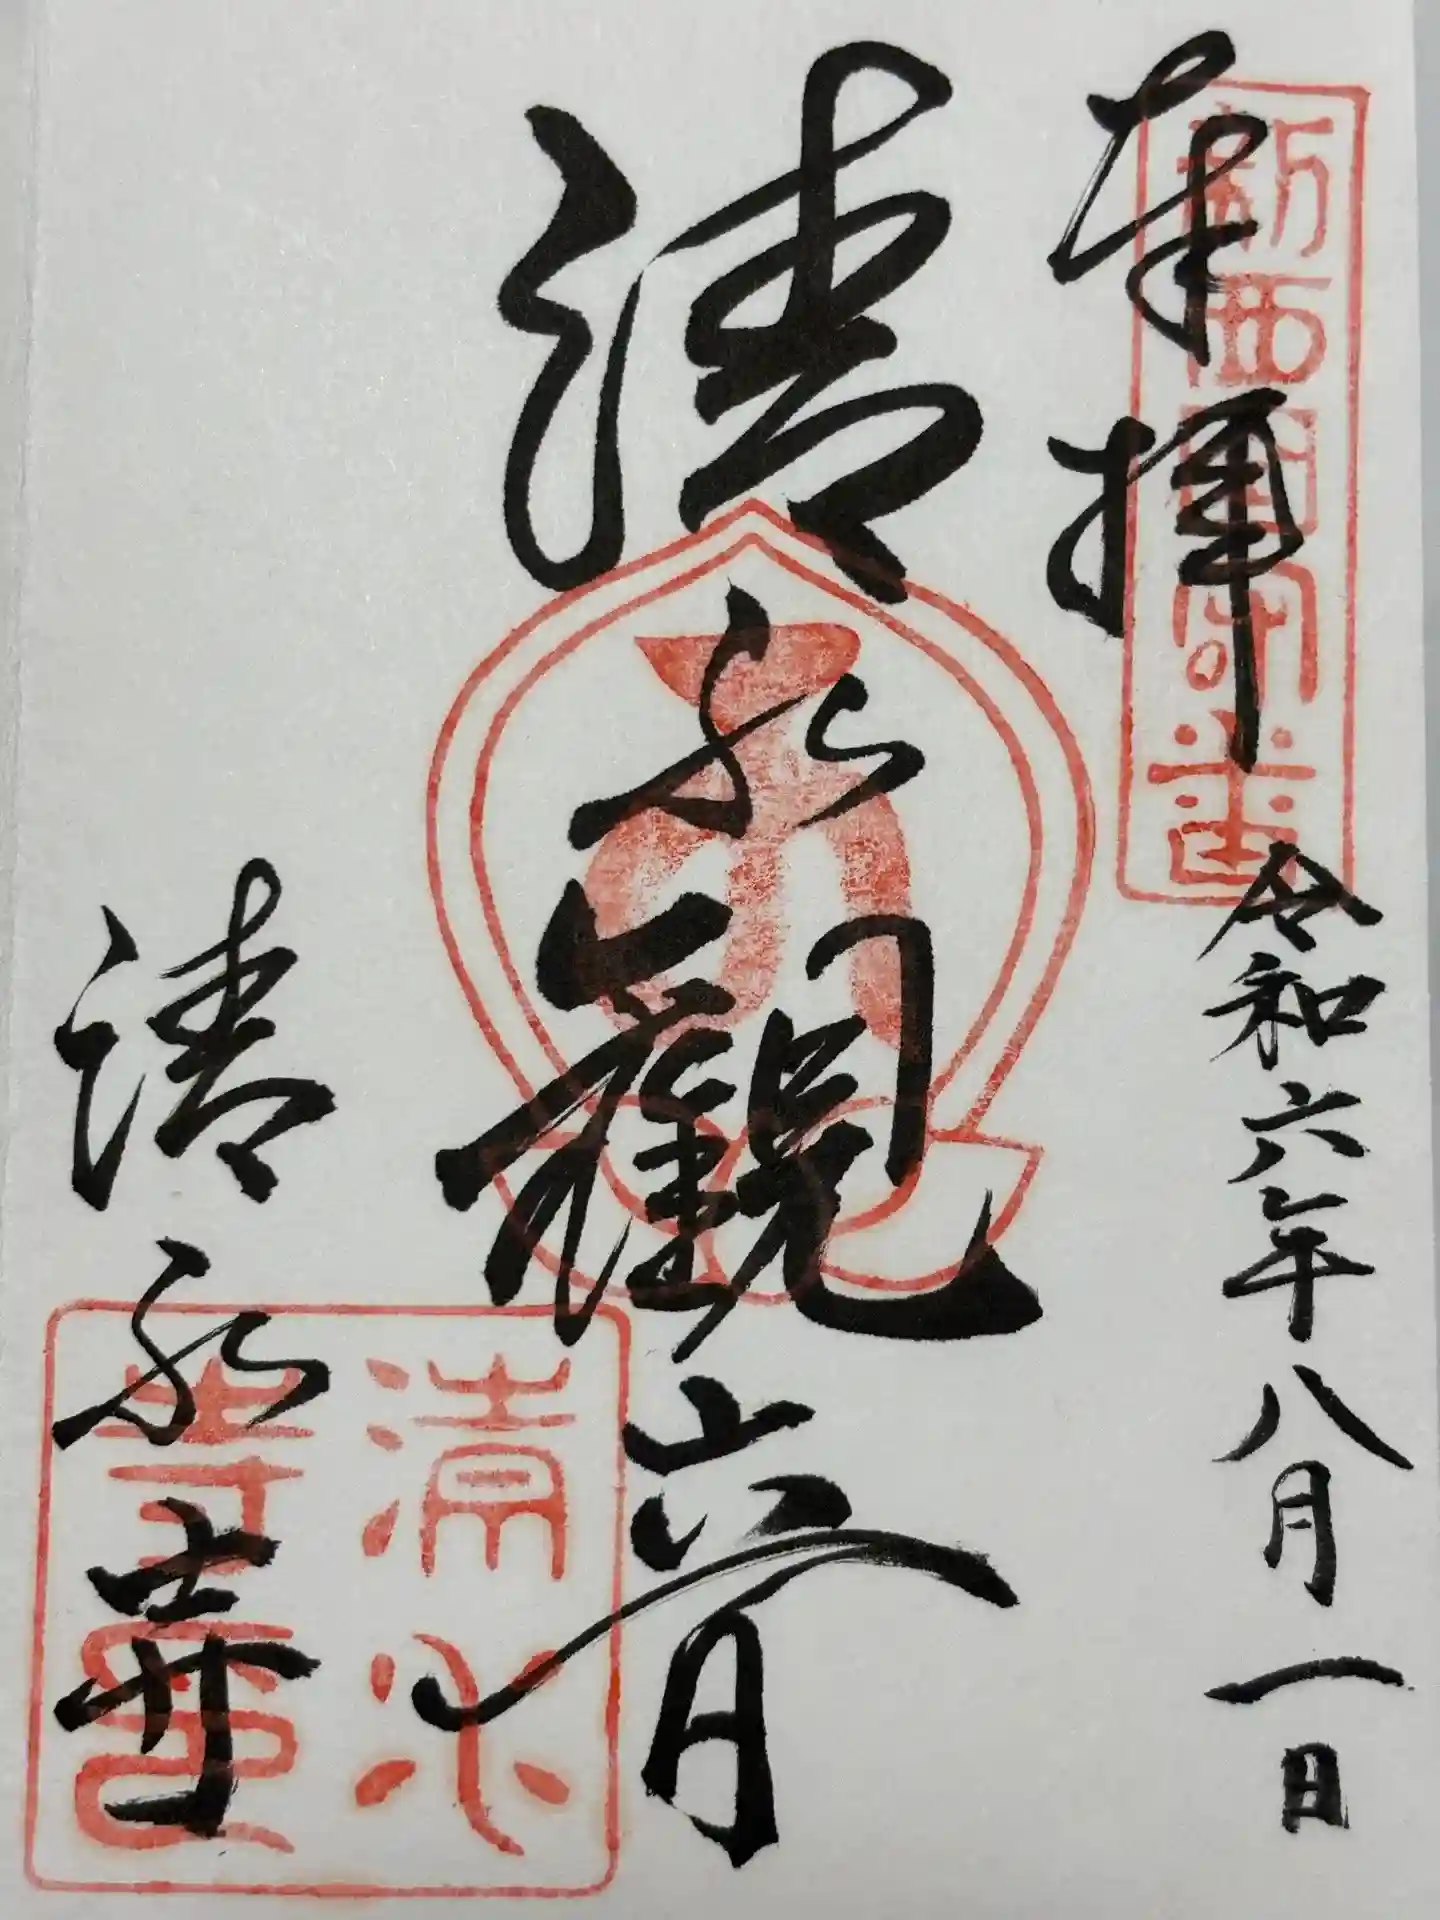 新西国客番
奉拝
令和六年八月一日
清水観音
清水寺
清水寺印